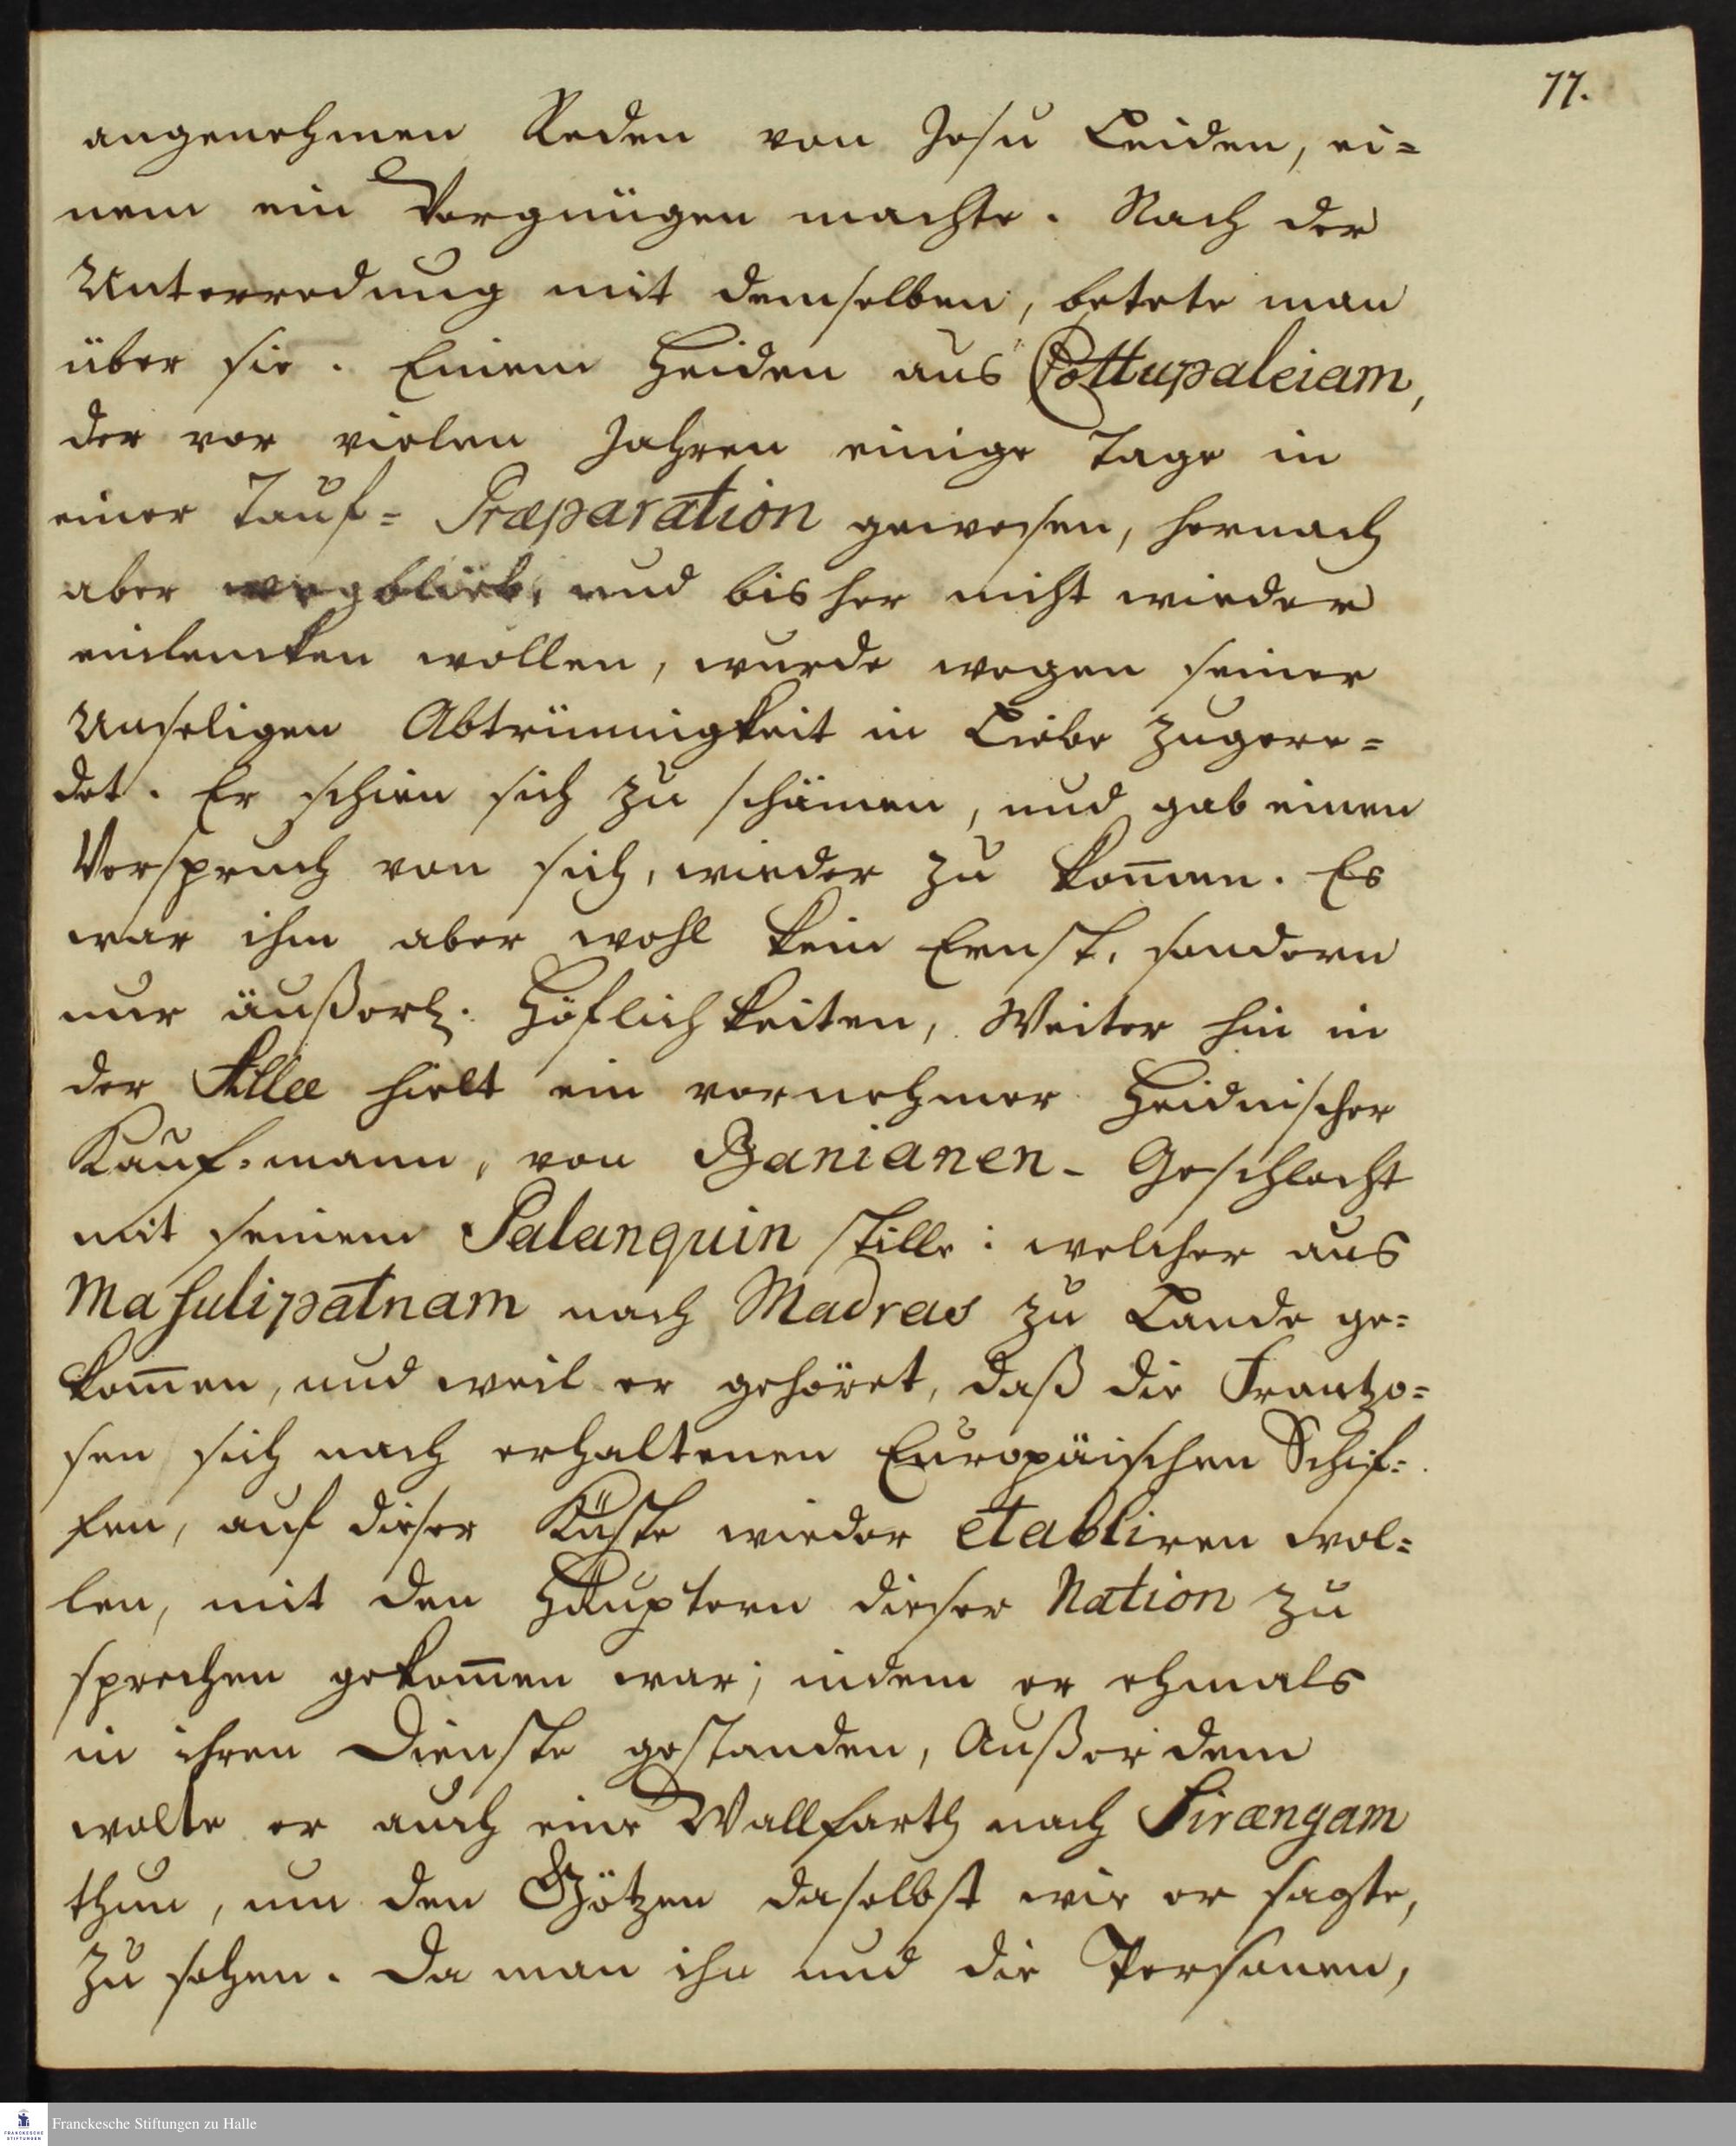 77.
angenehmen Reden von Jesu Leiden, ei=
nem ein Vergnügen machte. Nach der
Unterredung mit demselben, betete man
über sie. Einem Heiden aus Pottupaleiam,
der vor vielen Jahren einige Tage in
einer Tauf= Præparation gewesen, hernach
aber wegblieb, und bisher nicht wieder
einlencken wollen, wurde wegen seiner
Unseligen Abtrünnigkeit in Liebe zugere=
det. Er schien sich zu schämen, und gab einen
Verspruch von sich, wieder zu kom̄en. Es
war ihm aber wohl kein Ernst, sondern
nur äußerl. Höflichkeiten, Weiter hin in
der Allee hielt ein vornehmer Heidnischer
Kauf=mann, von Banianen- Geschlecht
mit seinem Palanquin stille: welcher aus
Masulipatnam nach Madras zu Lande ge=
kom̄en, und weil er gehöret, daß die Frantzo=
sen sich nach erhaltenen Europäischen Schif=
fen, auf dieser Küste wieder etabliren wol=
len, mit den Häuptern dieser Nation zu
sprechen gekom̄en war; indem er ehmals
in ihren Dienste gestanden, Außerdem
wolte er auch eine Wallfarth nach Sirængam
thun, um den Götzen daselbst wie er sagte,
zu sehen. Da man ihn und die Personen,
Franckesche Stiftungen zu Halle
FRANCKESCHE
STIFTUNGEN